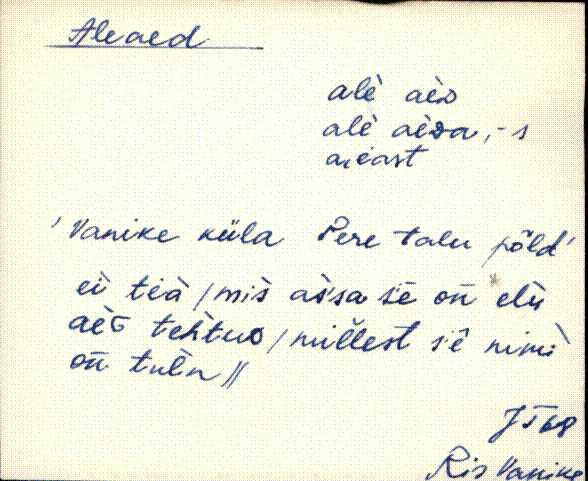 Aleaed
alè aèD
alè aèDa, -s
aieast
'Vanike küla Pere talu põld'
ei tiä / mis as'sa s'ē on eĺn
aèG tehtuD / millest s'ē nimi
on tuĺn //
JT68
Ris Vanike